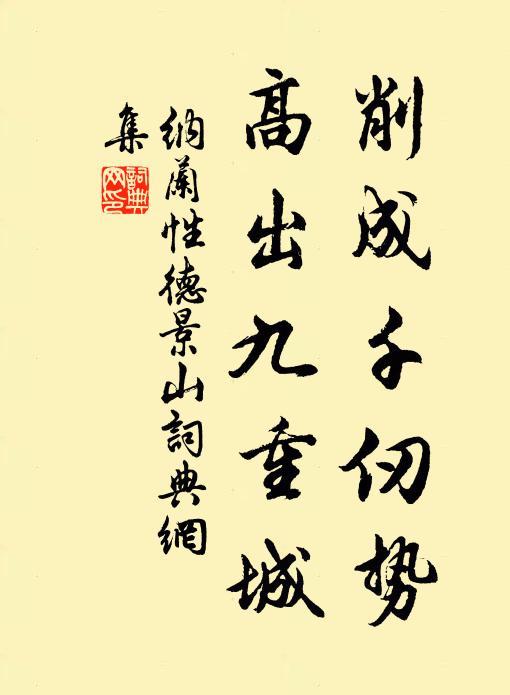 削成千仞势
高出九重城
納蘭性德景山詞典網
集
詞典网印